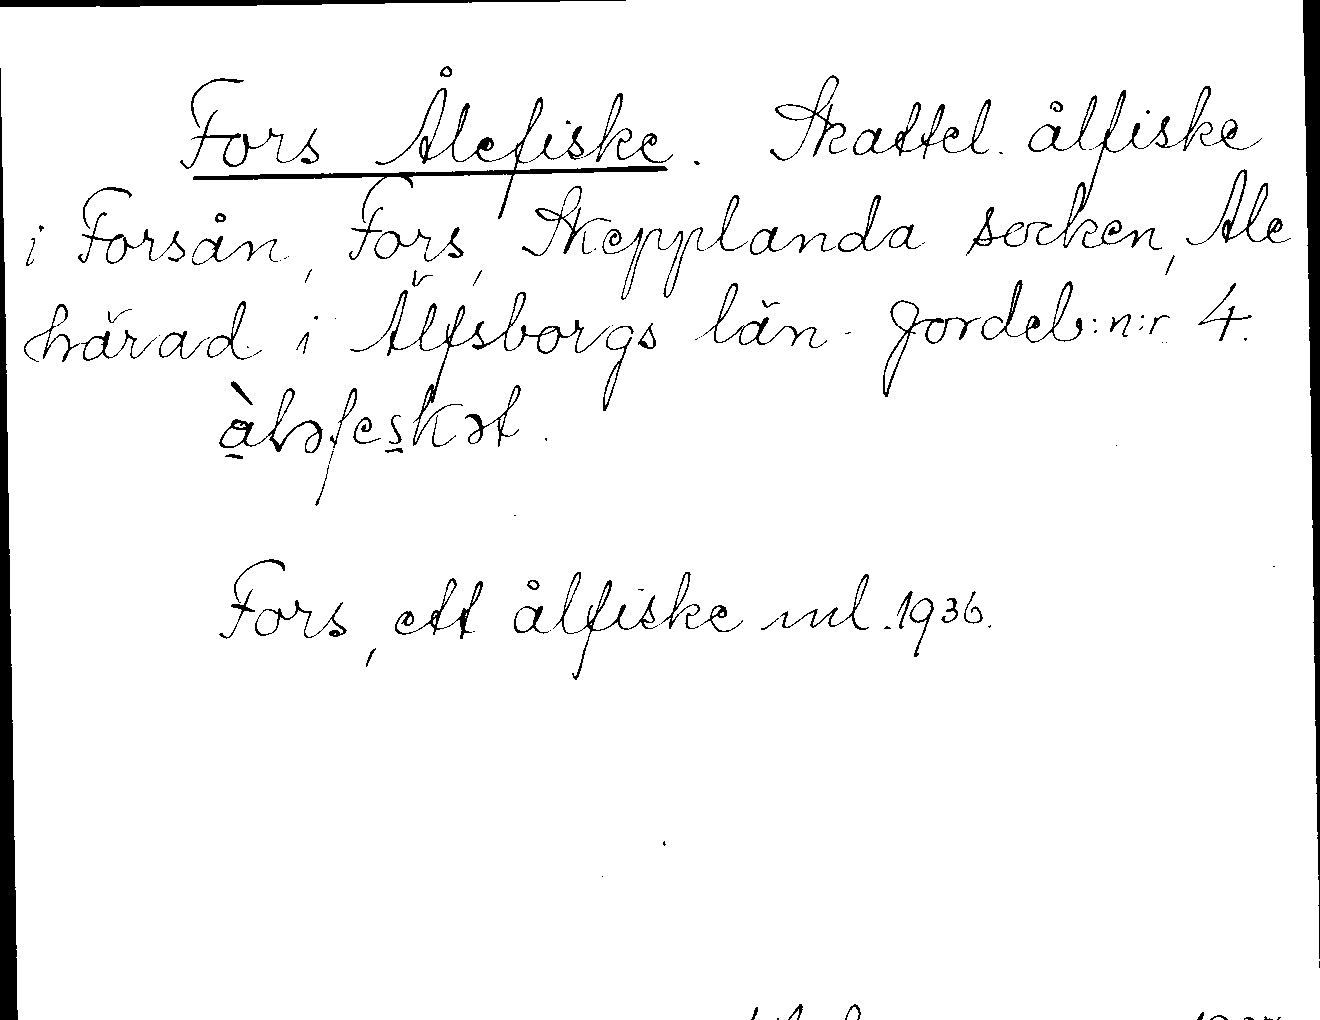 Fors Ålefiske. Skattel. ålfiske
i Forsån, Fors, Skepplanda socken, Ale
härad i Älfsborgs län. Jordeb:n:r 4.
Fors, ett ålfiske ml. 1936.